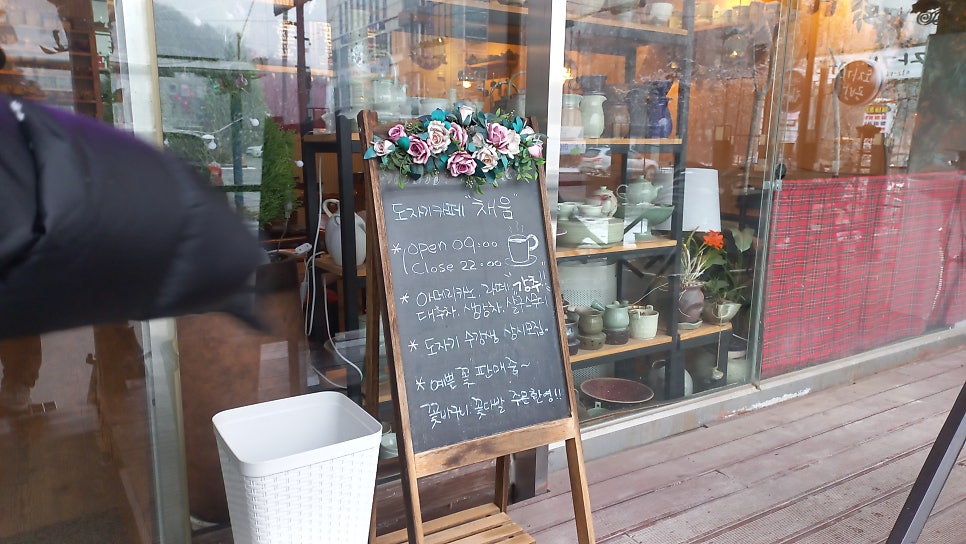 도자기카페 "채움"
* open 09:00
close 22:00
* 아메리카노, 라떼 "강추!!
대추차, 생강차,
* 도자기 수강생 상시모집.
* 예쁜 꽃 판매중~
꽃바구니, 꽃다발 주문환영!!